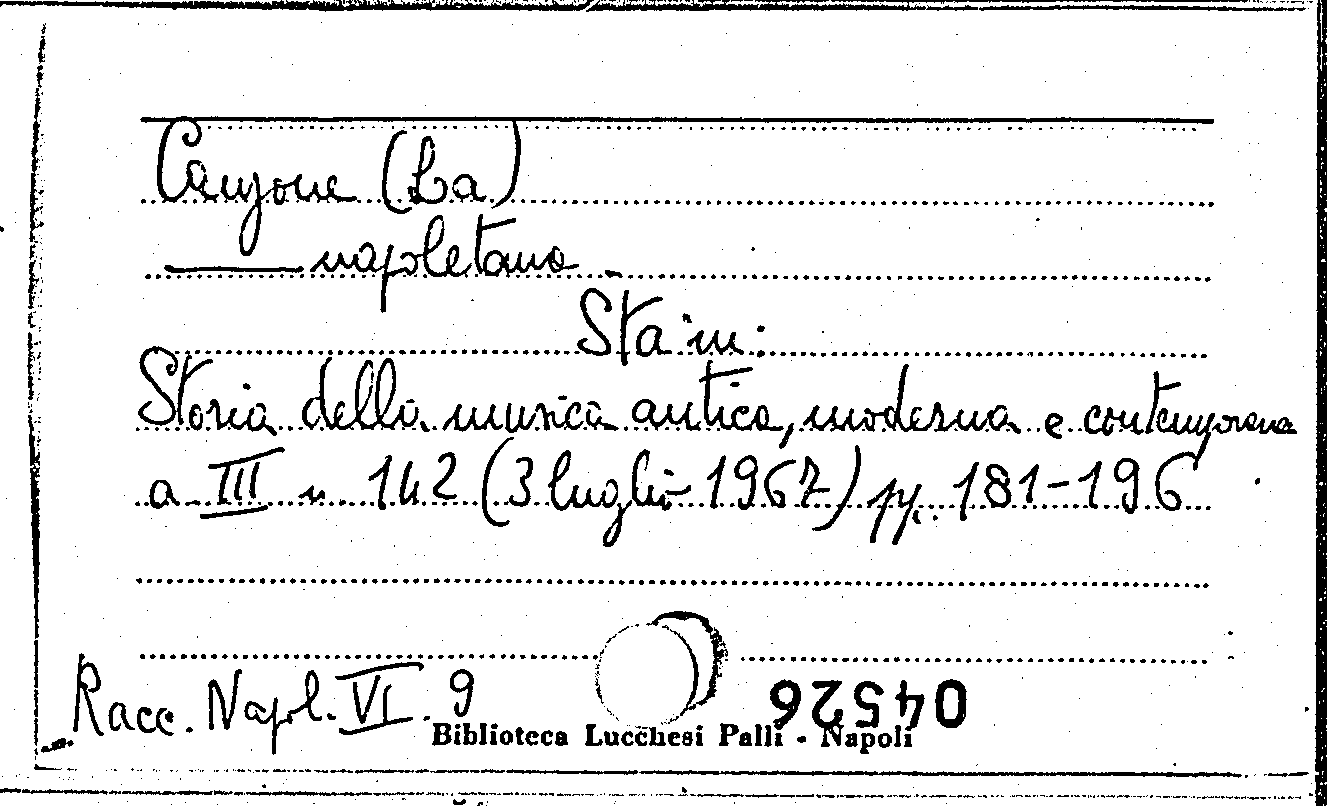 Canzone (La)
—— napoletana.
Sta in:
Storia della musica antica, moderna e contemporanea
a III n 142 (3 luglio 1967) pp. 181-196
Racc. Napl. VI. 9
04526
Biblioteca Lucchesi Palli - Napoli